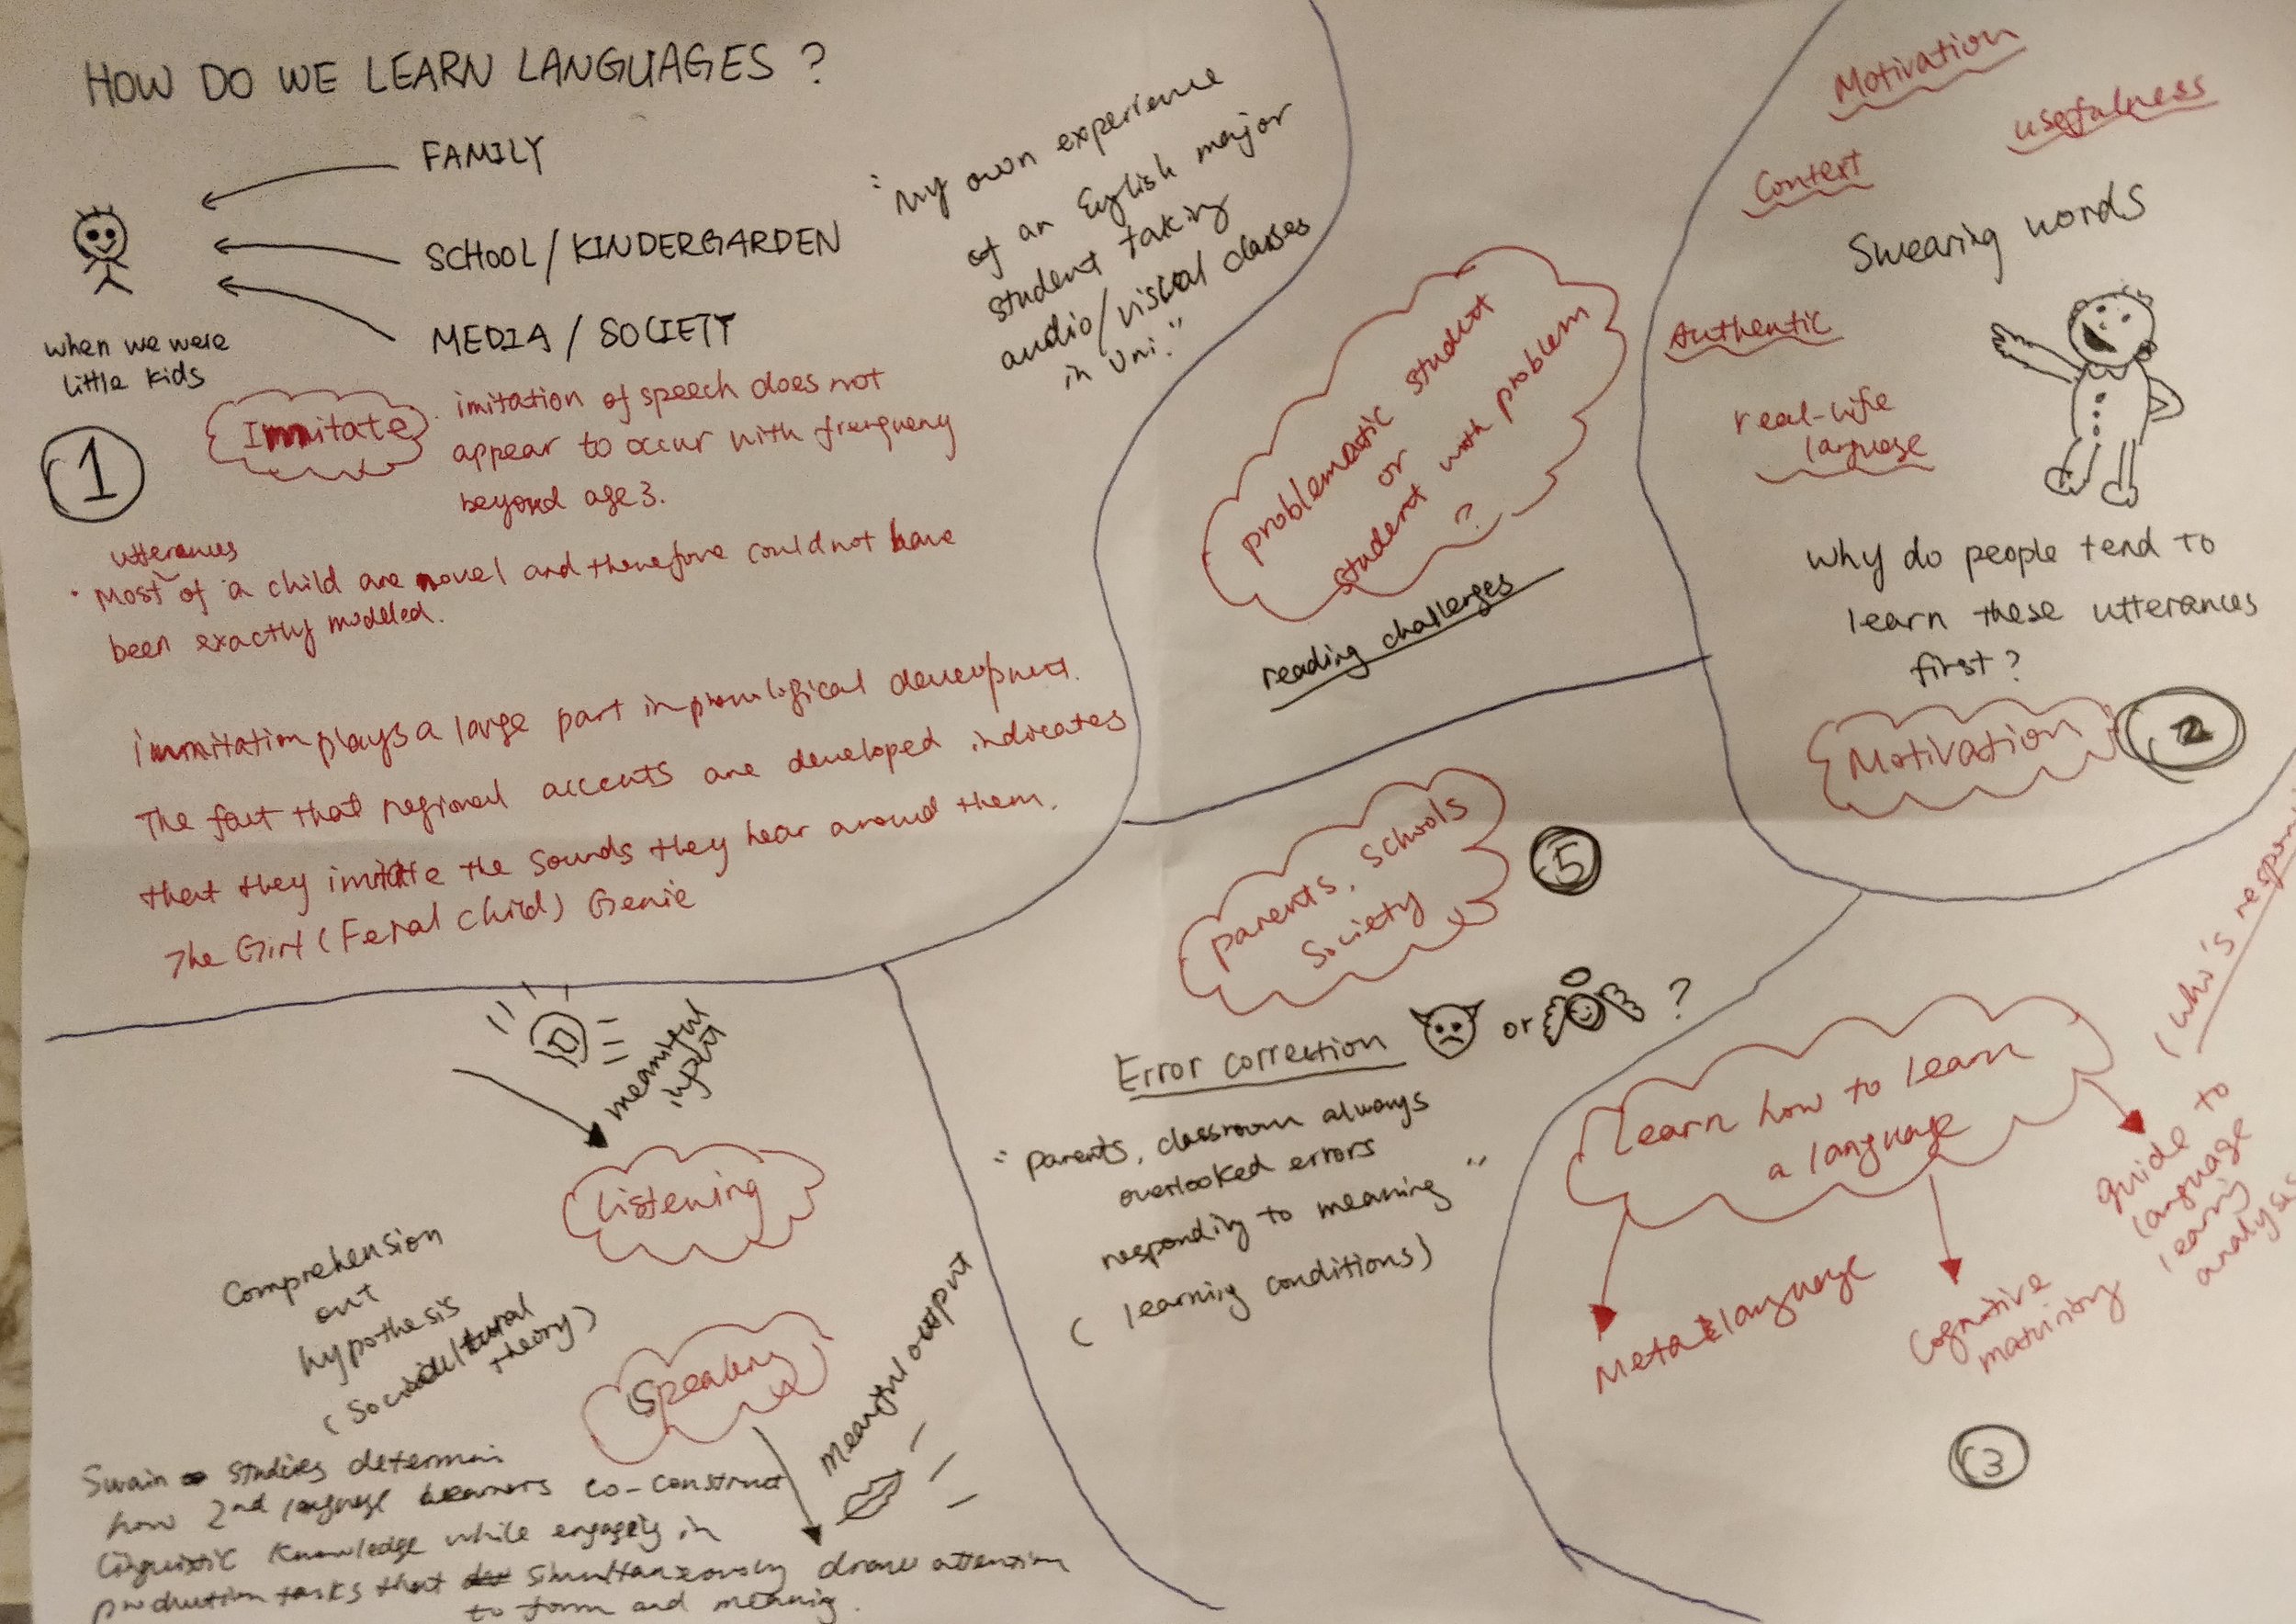 HOW DO WE LEARN LANGUAGES ?
FAMILY
SCHOOL / KINDERGARDEN
MEDIA / SOCIETY
when we were
little kids
1
Immitate
· imitation of speech does not
appear to occur with frequency
beyond age 3.
utterances
· Most of a child are novel and therefore could not have
been exactly modeled.
Immitation plays a large part in phonological development.
The fact that regional accents are developed indicates
that they imitate the sounds they hear around them.
The Girl (Feral child) Genie
"My own experience
of an English major
student taking
audio/visual classes
in Uni."
problematic student
or
student with problem
?
reading challenges
Motivation
usefulness
Context
Swearing words
Authentic
real-life
language
Why do people tend to
learn these utterances
first?
Motivation
2
parents, schools
Society
5
Error correction or ?
"parents, classroom always
overlooked errors
responding to meaning"
( learning conditions)
(who's
learn how to learn
a language
guide to
language
learning
analysis
Metalanguage
Cognitive
maturity
3
meaningful
input
Listening
Comprehension
out
hypothesis
(Sociocultural
theory)
Speaking
meaningful output
Swain studies determin
how 2nd language learners co-construct
linguistic knowledge while engaging in
production tasks that simultaneously draw attention
to form and meaning.